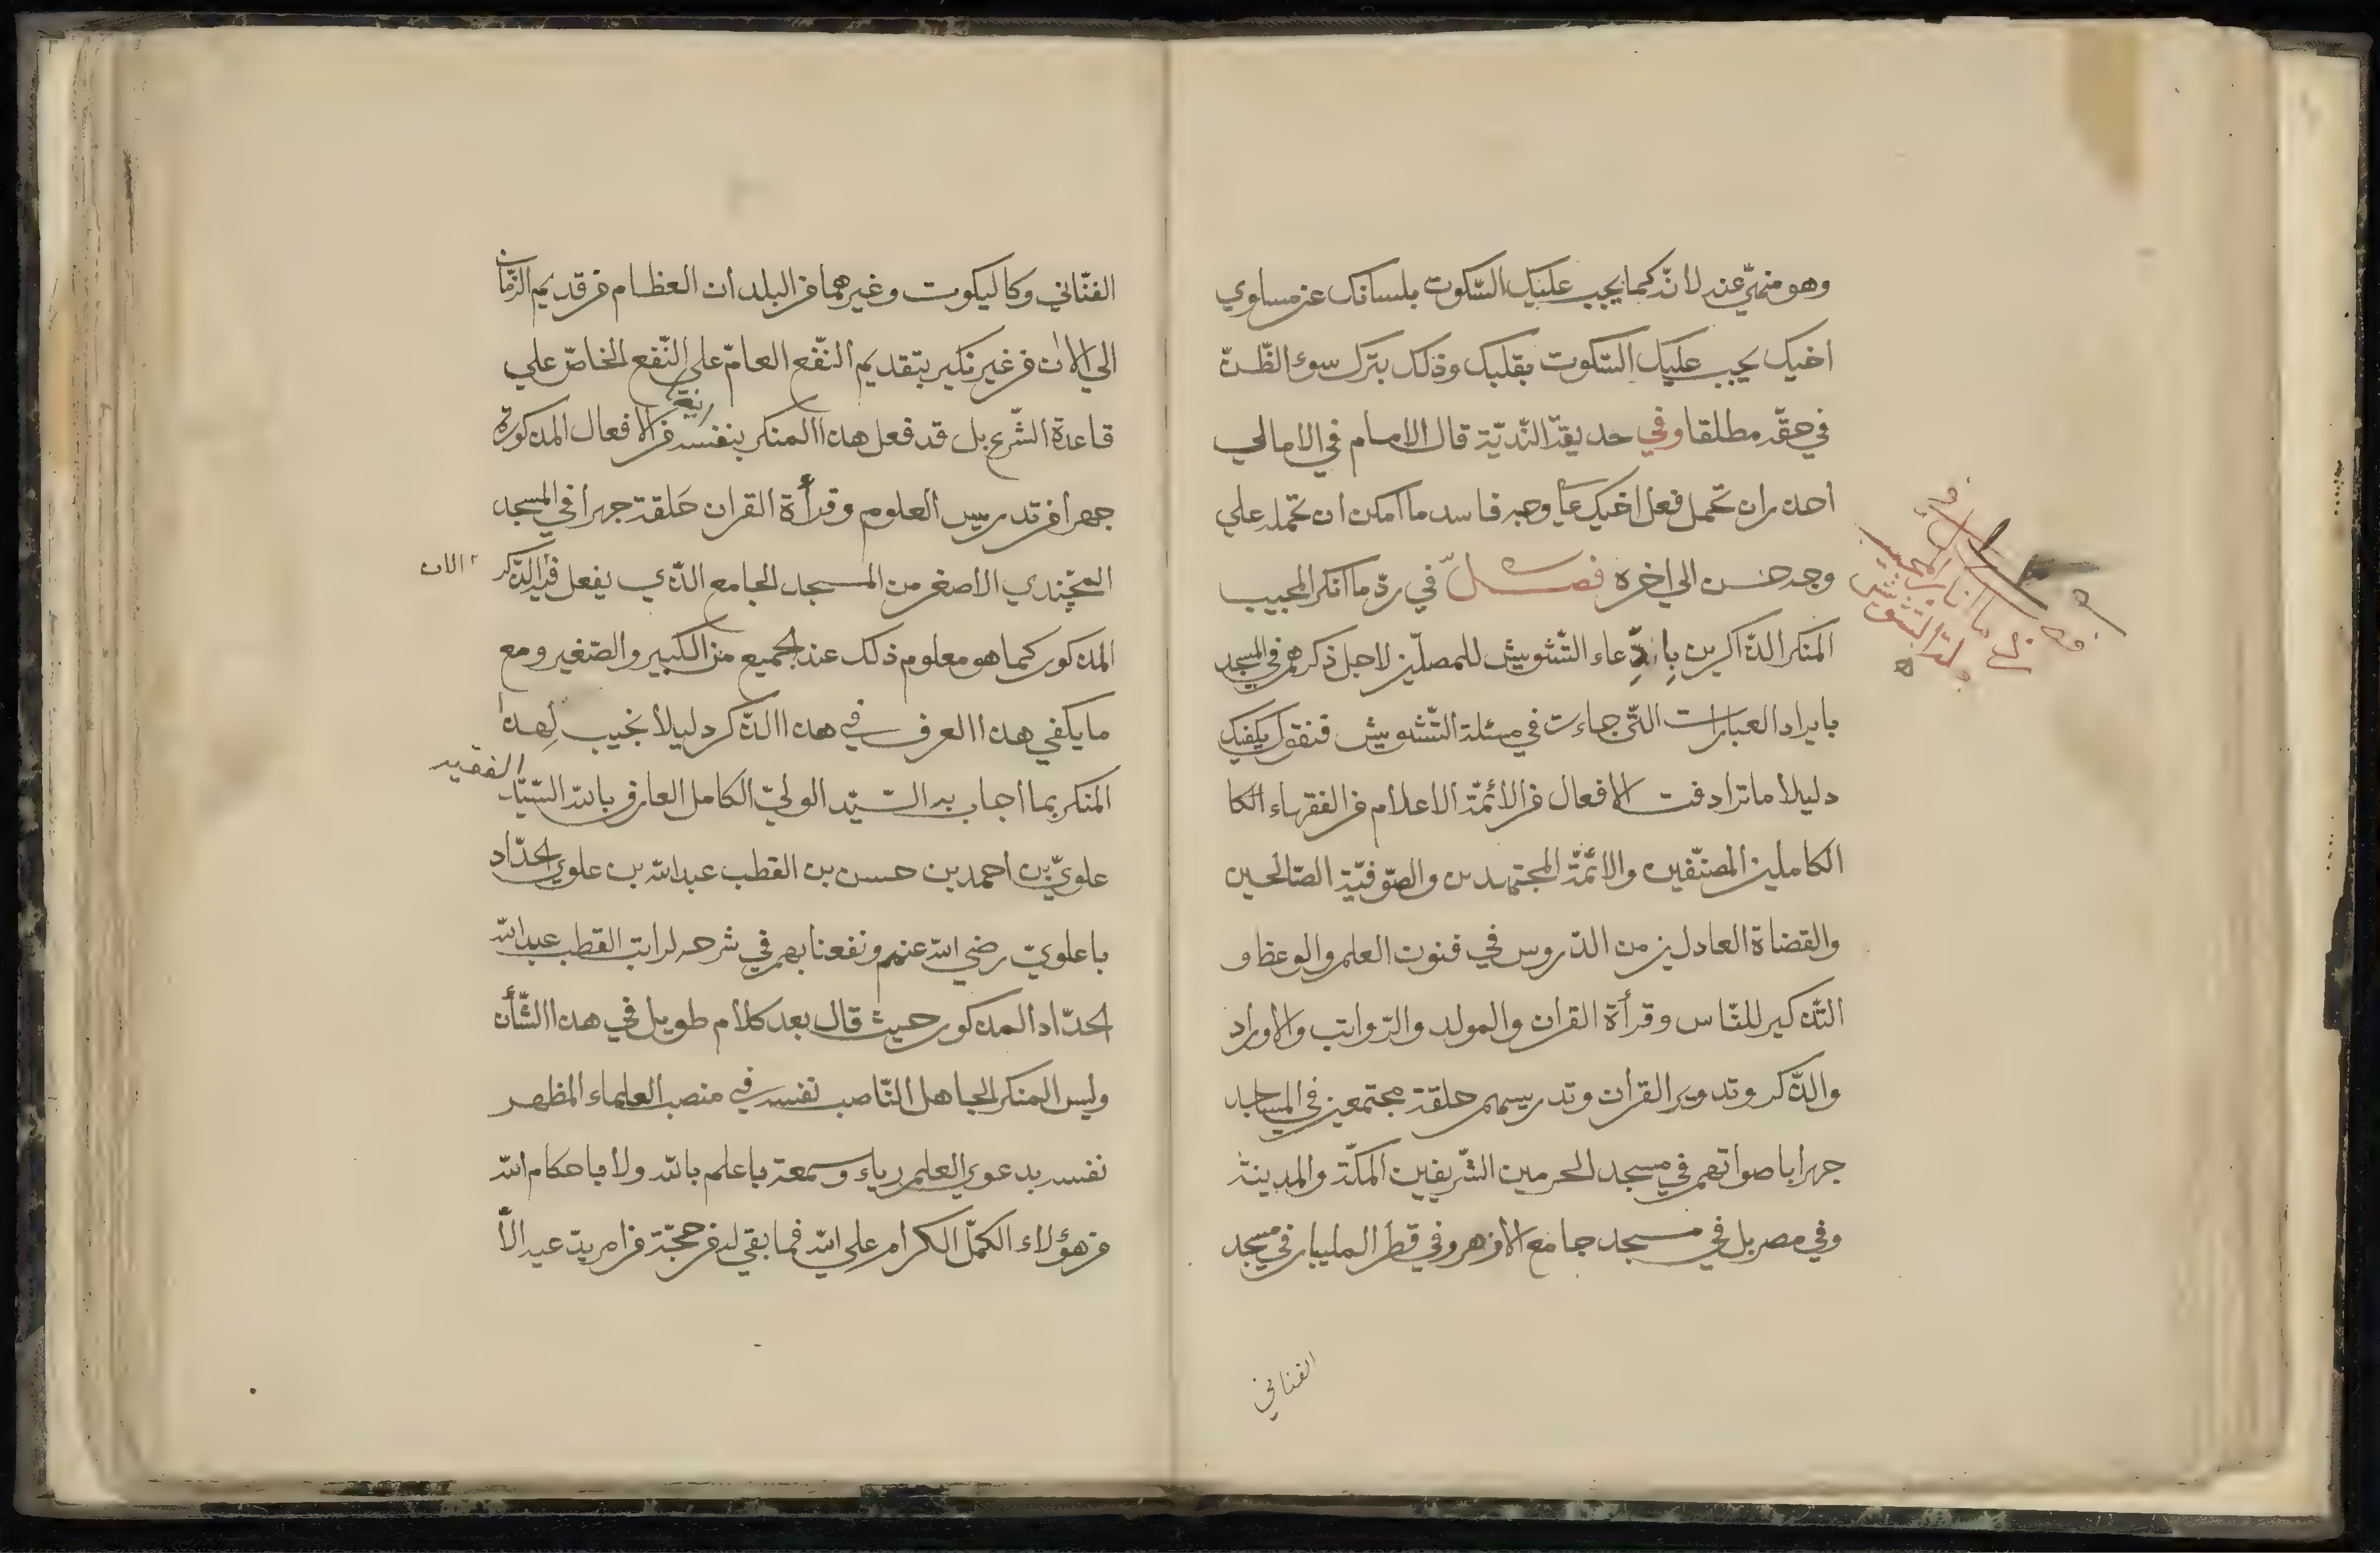 وهو منهيّ عنه لانّه كما يجب عليك السّكوت بلسانك عن مساوي
اخيك يجب عليك السّكوت بقلبك وذلك بترك سوء الظّنّ
في حقّه مطلقا وفي حديقة النّديّة قال الامام في الامالي
احذر ان تحمل فعل اخيك علي وجه فاسد ما امكن ان تحمله علي
وجه حسن الي اخره فصل في ردّ ما انكر المجيب
المنكر الذّاكرين بادّعاء التّشويش للمصلّين لاجل ذكرهم في المسجد
بايراد العبارات الّتي جاءت في مسئلة التّشويش فنقول يكفيك
دليلا ما ترادفت الافعال من الائمّة الاعلام من الفقهاء الكا
الكاملين المصنّفين والائمّة المجتهدين والصّوفيّة الصّالحين
والقضاة العادلين من الدّروس في فنون العلم والوعظ و
التّذكير للنّاس وقرأة القران والمولد والرّواتب والاوراد
والذّكر وتدوير القرأن وتدريسهم حلقة مجتمعين في المساجد
جهرا باصواتهم في مسجد الحرمين الشّريفين المكّة والمدينة
وفي مصر بل في مسجد جامع الازهر وفي قطر المليبار في مسجد
الفناني
الفنّاني وكاليكوت وغيرهما من البلدان العظام من قديم الزّمان
الي الان من غير نكير بتقديم النّفع العامّ علي النّفع الخاصّ علي
قاعدة الشّرع بل قد فعل هذا المنكر بنفسه من الافعال المذكورة
جهرا من تدريس العلوم وقرأة القران حَلقة جهرا في المسجد
الاصغر من المسجد الجامع الّذي يفعل فيه الذّكر الان
المذكور كما هو معلوم ذلك عند الجميع من الكبير والصّغير ومع
ما يكفي هذا العرف في هذا الذّكر دليلا نجيب لِهذا
المنكر بما اجاب به السّيّد الوليّ الكامل العارف بالله السّيّد الفقيه
علويّ بن احمد بن حسن بن القطب عبد الله بن علوي الحدّاد
باعلويّ رضي الله عنهم ونفعنا بهم في شرحه لراتب القطب عبد الله
الحدّاد المذكور حيث قال بعد كلام طويل في هذا الشّأن
وليس المنكر الجاهل النّاصب نفسه في منصب العلماء المظهر
نفسه بدعوي العلم رياء وسمعة باعلم بالله ولا باحكام الله
من هؤلاء الكمّل الكرام علي الله فما بقي له من حجّة